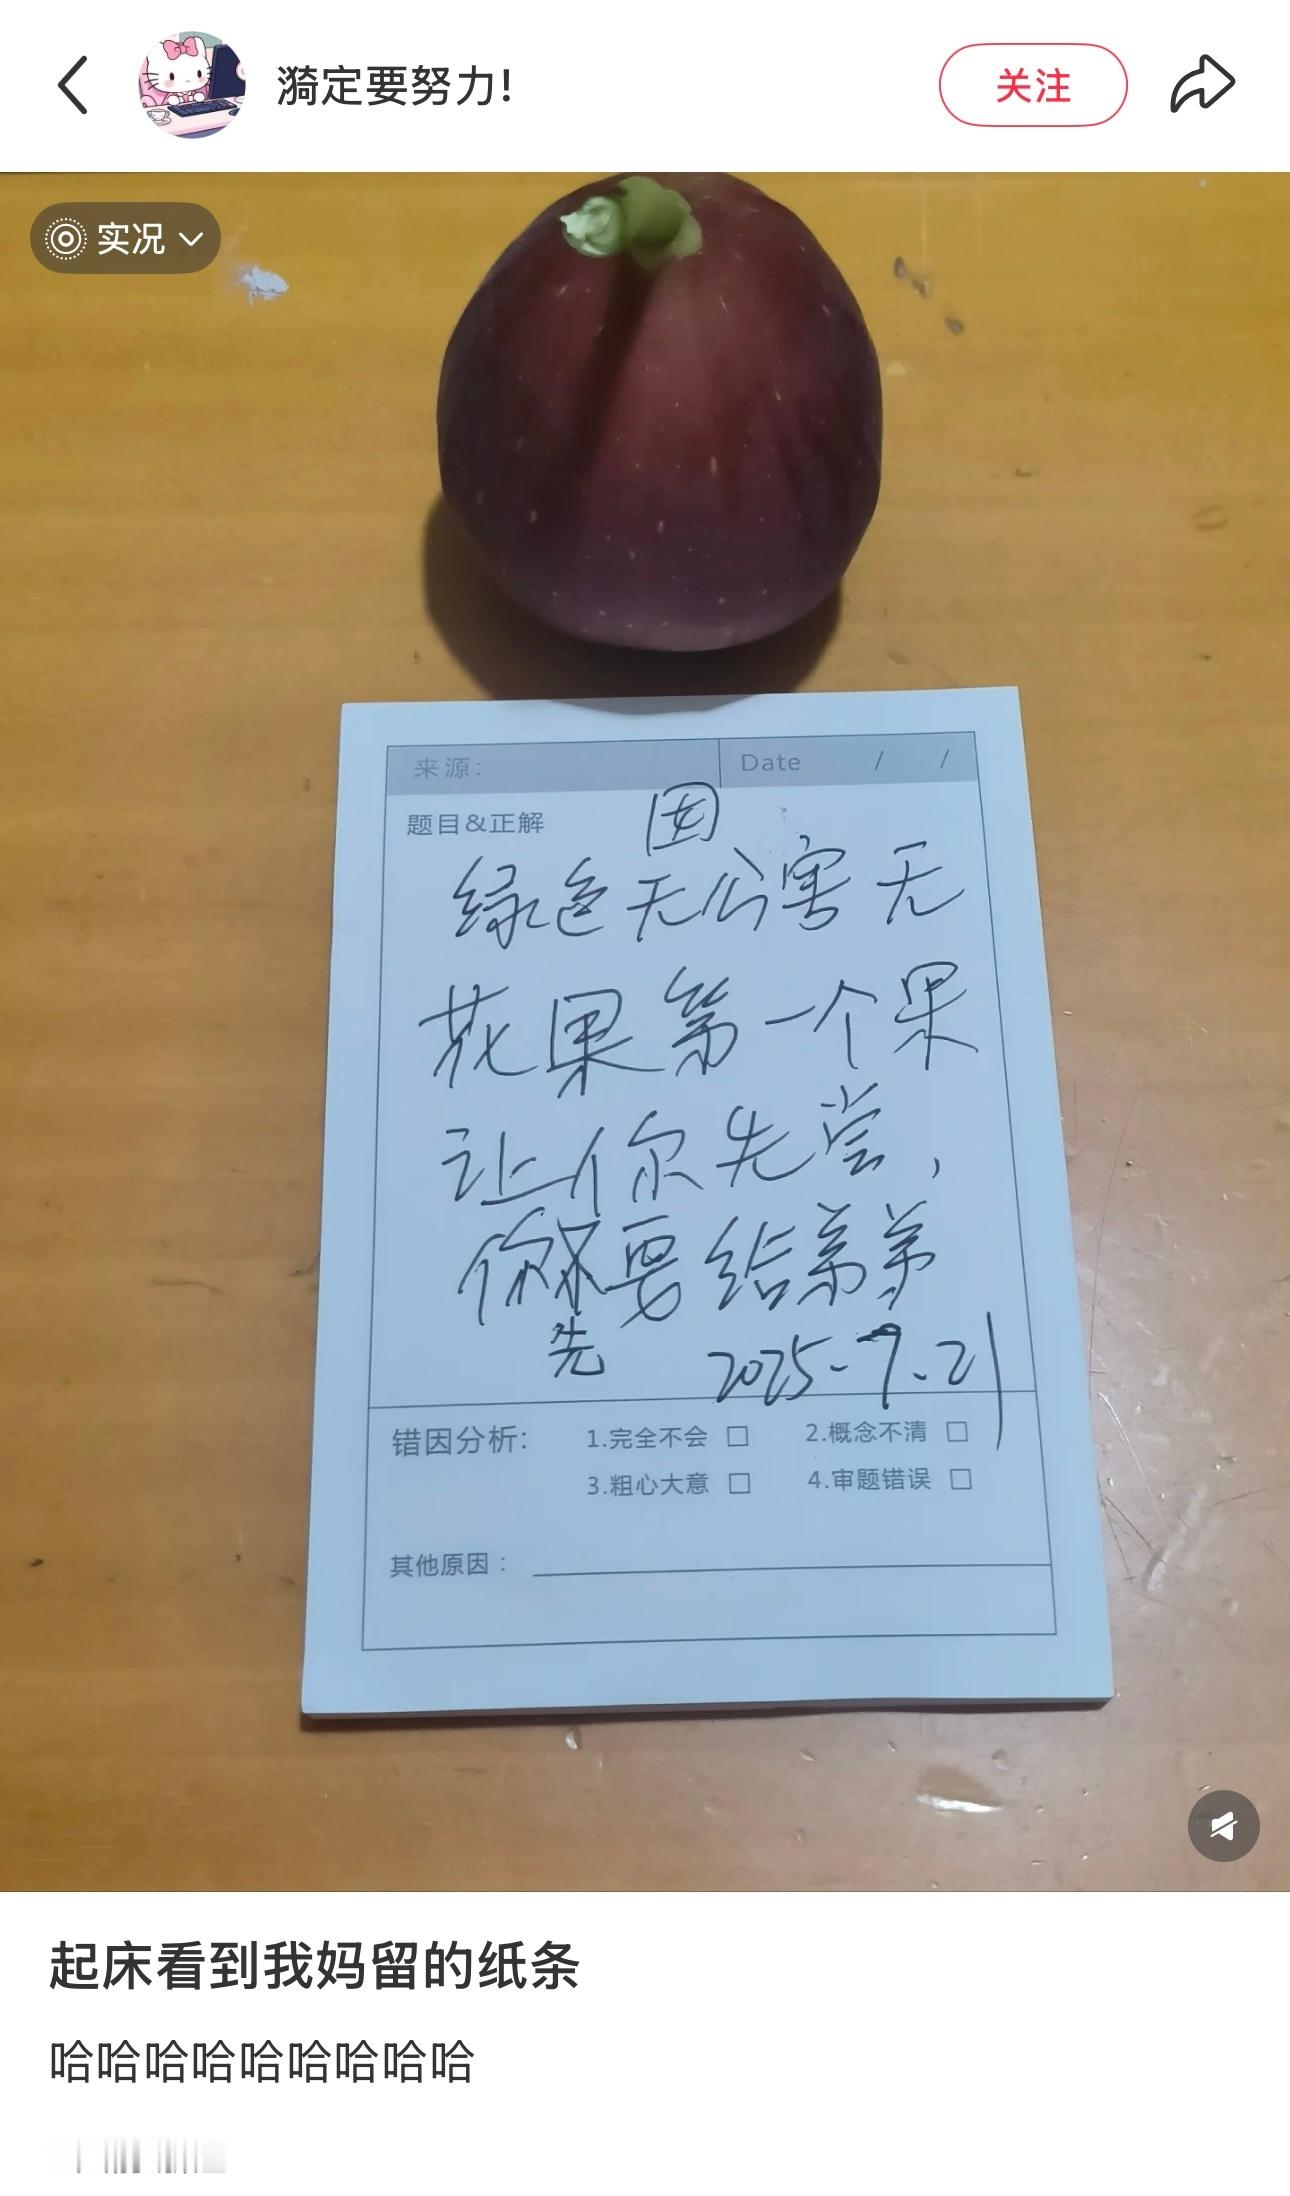 漪定要努力!
关注
实况
来源: Date / /
题目&正解
绿色无公害无
花果第一个果
让你先尝,
你不要给弟弟
先 2025-9.21
错因分析: 1.完全不会 □ 2.概念不清 □
3.粗心大意 □ 4.审题错误 □
其他原因:
起床看到我妈留的纸条
哈哈哈哈哈哈哈哈哈